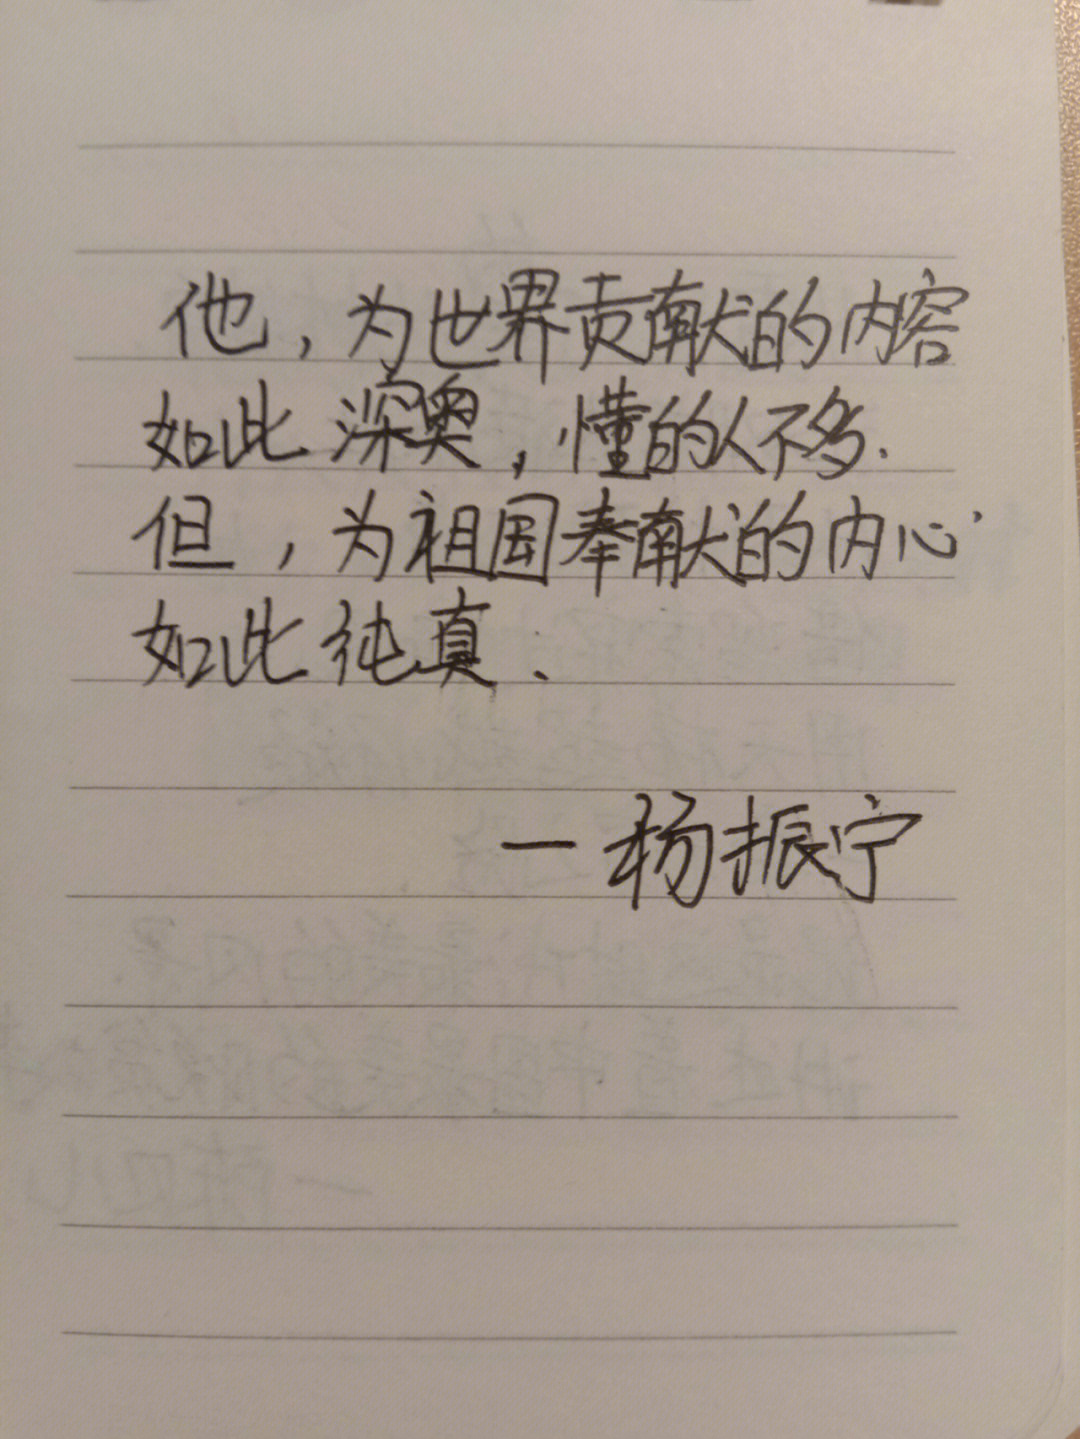 他，为世界贡献的内容
如此深奥，懂的人不多.
但，为祖国奉献的内心
如此纯真.
—杨振宁